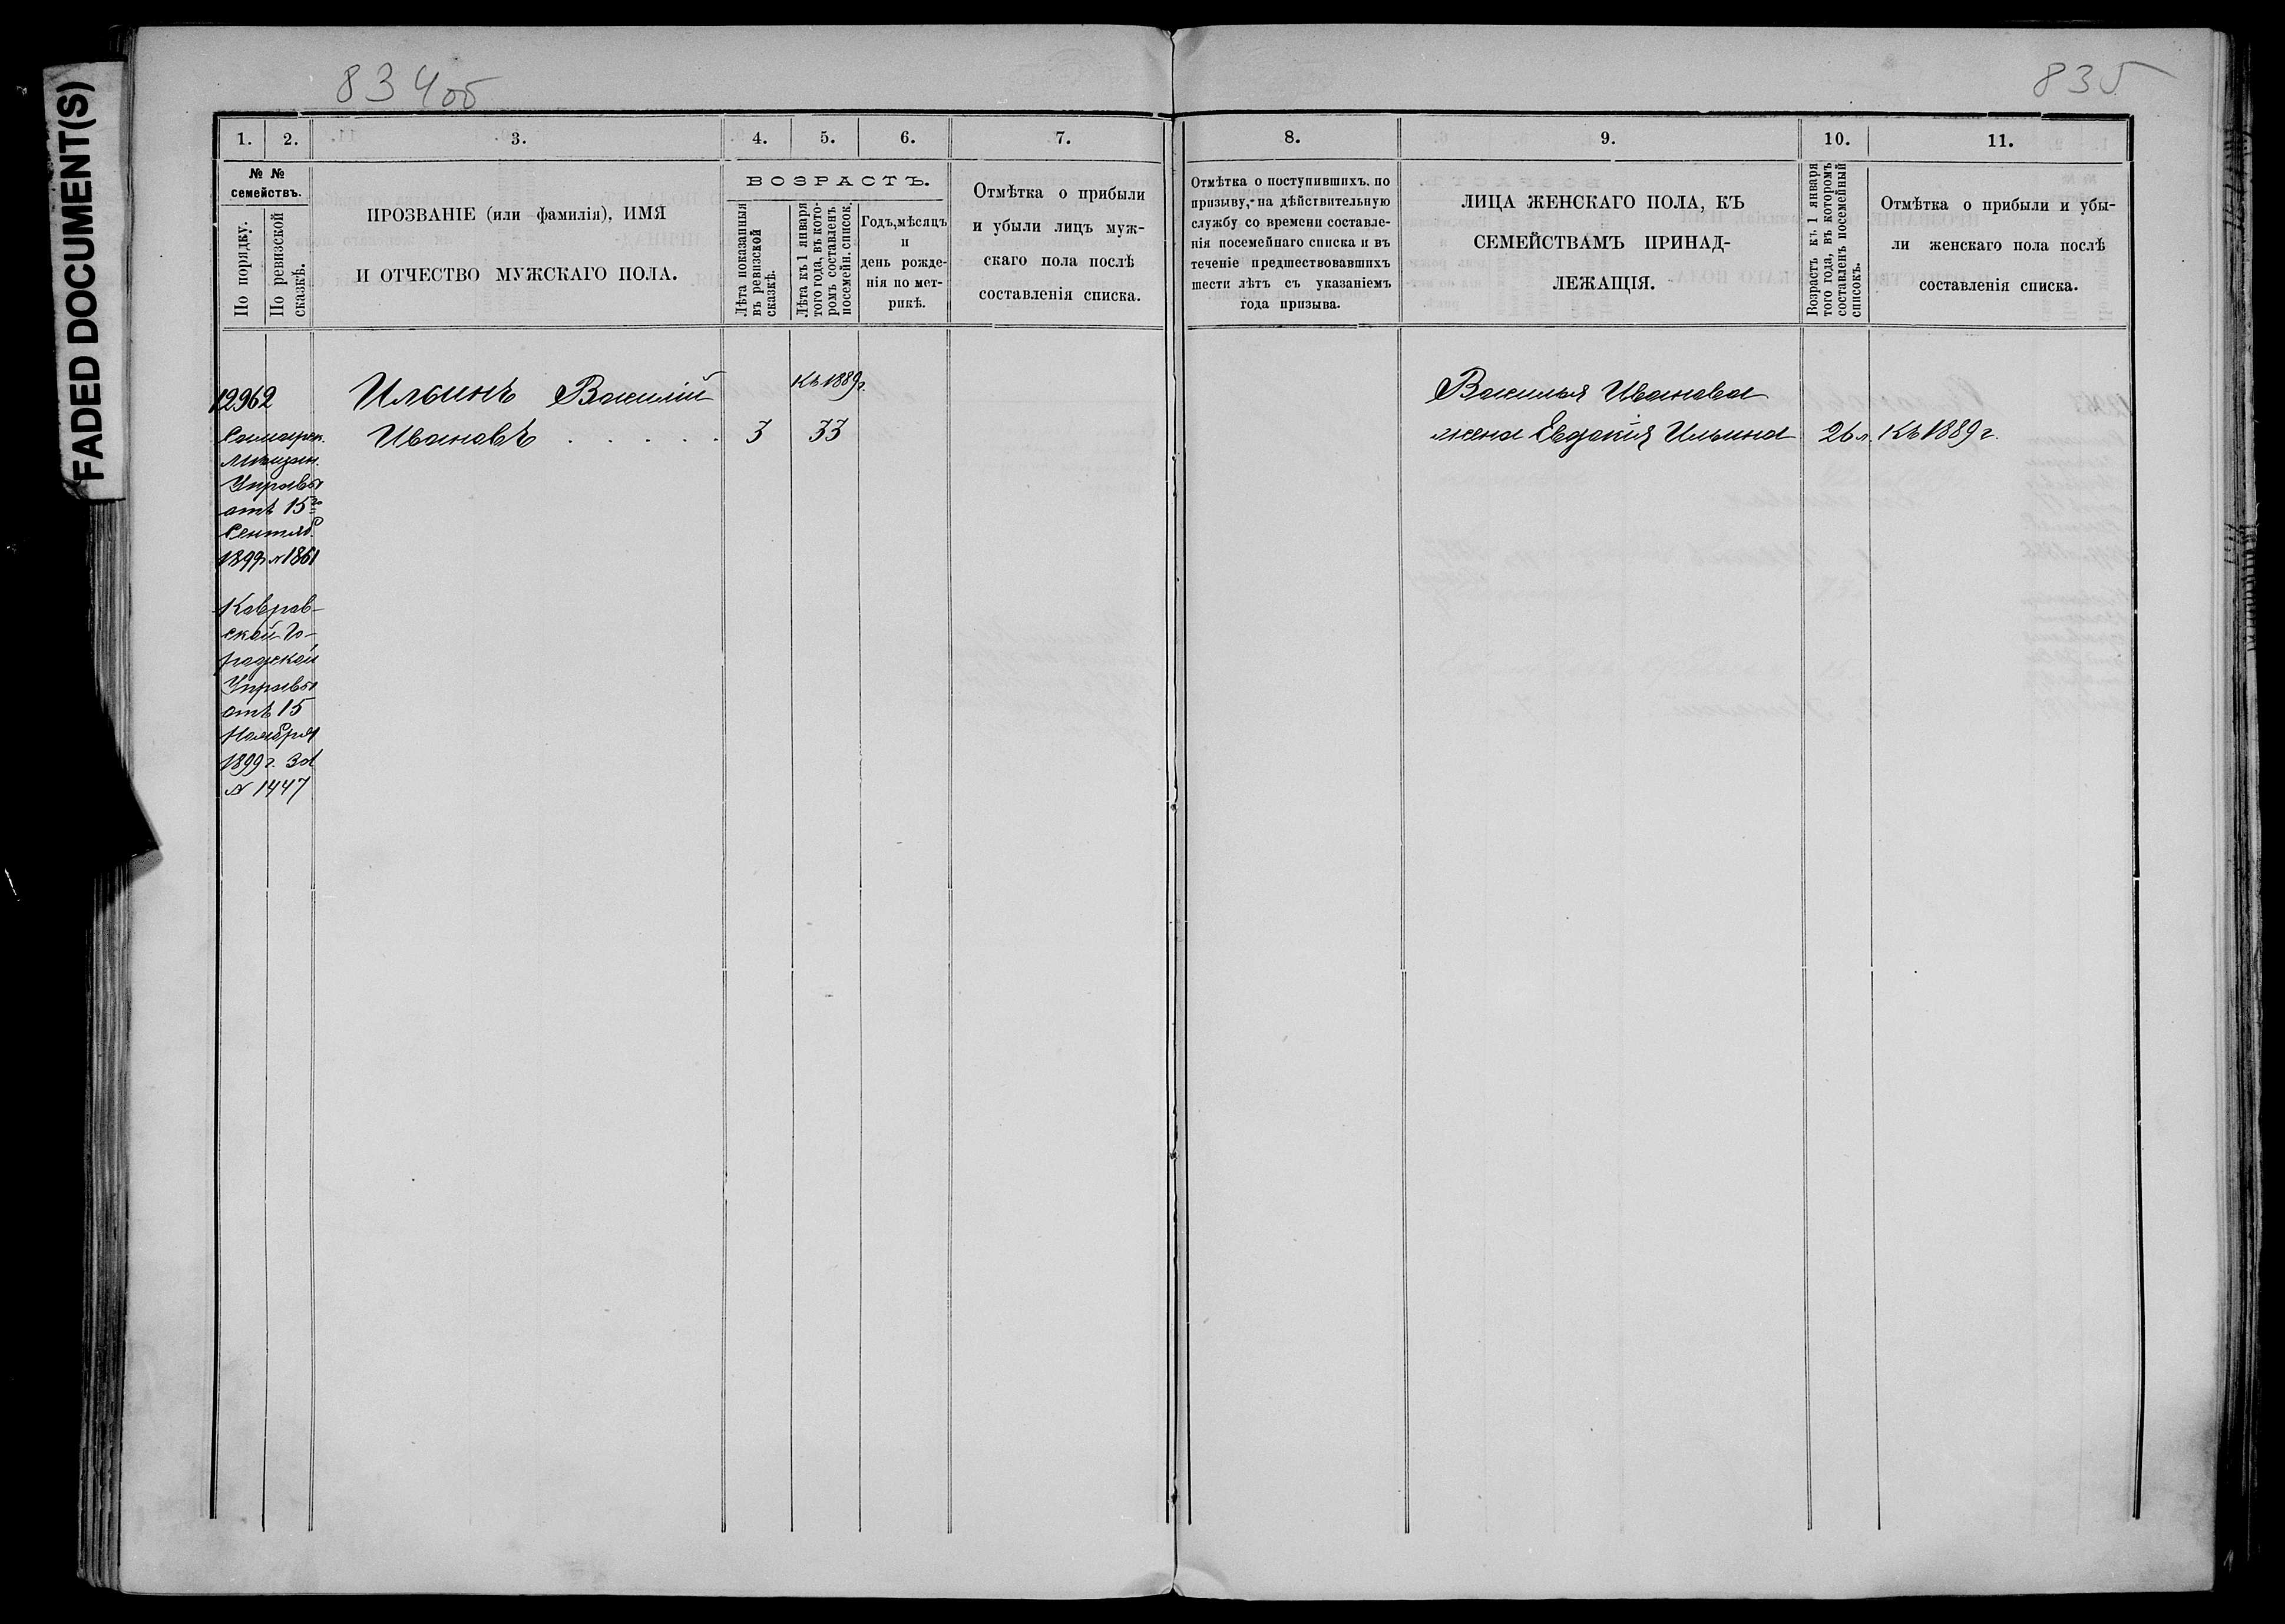 FADED DOCUMENT(S)
834об
835
1. 2. 3. 4. 5. 6. 7.
№ №
семействъ.
По порядку.
По ревизской
сказкѣ.
ПРОЗВАНІЕ (или фамилія), ИМЯ
И ОТЧЕСТВО МУЖСКАГО ПОЛА.
ВОЗРАСТЪ.
Лѣта показанныя
въ ревизской
сказкѣ.
Лѣта къ 1 января
того года, въ кото-
ромъ составленъ
посемейн. списокъ.
Годъ, мѣсяцъ
и
день рожде-
нія по мет-
рикѣ.
Отмѣтка о прибыли
и убыли лицъ муж-
скаго пола послѣ
составленія списка.
8. 9. 10. 11.
Отмѣтка о поступившихъ, по
призыву, на дѣйствительную
службу со времени составле-
нія посемейнаго списка и въ
теченіе предшествовавшихъ
шести лѣтъ съ указаніемъ
года призыва.
ЛИЦА ЖЕНСКАГО ПОЛА, КЪ
СЕМЕЙСТВАМЪ ПРИНАД-
ЛЕЖАЩІЯ.
Возрастъ къ 1 января
того года, въ которомъ
составленъ посемейный
списокъ.
Отмѣтка о прибыли и убы-
ли женскаго пола послѣ
составленія списка.
12962
Самарск.
Мѣщан.
Управы
отъ 15го
Сентяб.
1899г № 1861
Ковров-
ской Го-
родской
Управы
отъ 15
Ноября
1899 г. за
№ 1447
Ильинъ Василій
Къ 1889г.
Ивановъ . . . . . 3 33
Василья Иванова
жена Евдокія Ильина 26 л. Къ 1889 г.